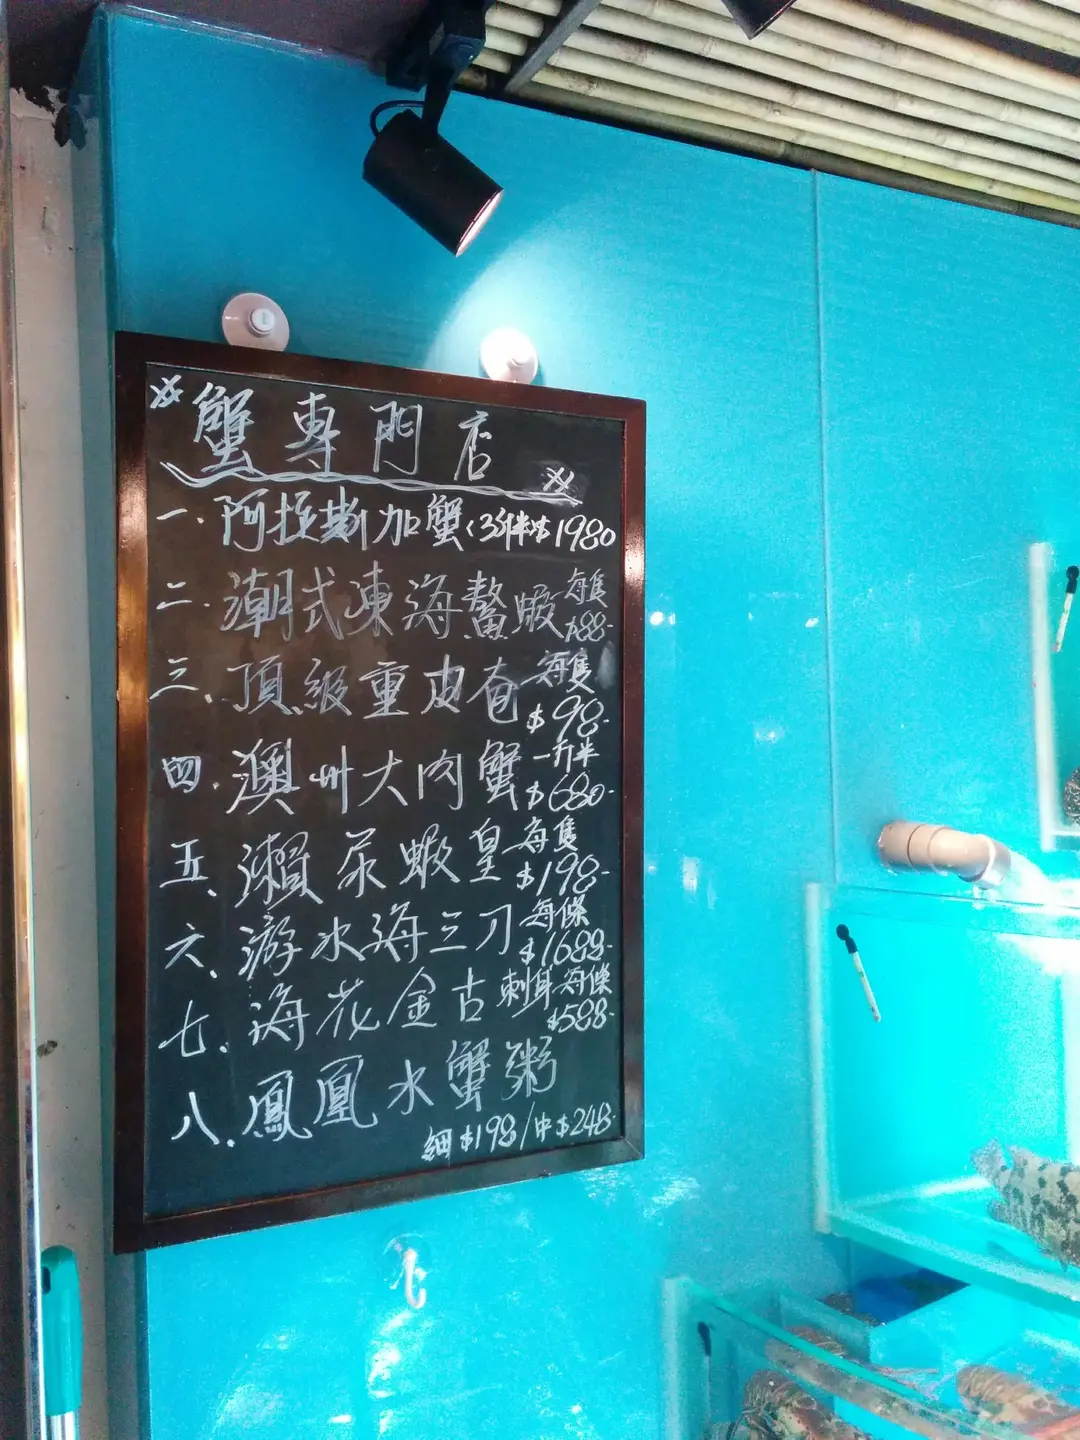 蟹專門店
一.阿拉斯加蟹(3斤半$1980
二.潮式凍海鰲蝦每隻$88-
三、頂級重皮奄每隻$98-
四.澳州大肉蟹一斤半$680-
五、瀨尿蝦皇每隻$198-
六、游水海三刀每條$1688-
七.海花金古刺身每條$588-
八.鳳凰水蟹粥
細$198/中$248-